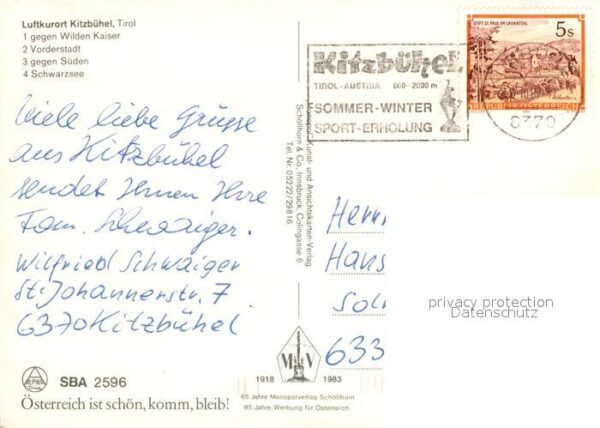 Luftkurort Kitzbühel, Tirol
1 gegen Wilden Kaiser
2 Vorderstadt
3 gegen Süden
4 Schwarzsee
Viele liebe Grüsse
aus Kitzbühel
sendet Ihnen Ihre
Fam. Schwaiger.
Wilfried Schwaiger
St. Johannerstr. 7
6370 Kitzbühel
SBA 2596
Österreich ist schön, komm, bleib!
Monopol-Kunst- und Ansichtskarten-Verlag
Schöllhorn & Co., Innsbruck, Colingasse 6
Tel Nr. 05222/29816
M V
1918 1983
65 Jahre Monopolverlag Schöllhorn
65 Jahre Werbung für Österreich
Kitzbühel
TIROL-AUSTRIA 800-2000 m
SOMMER-WINTER
SPORT-ERHOLUNG
STIFT ST. PAUL IM LAVANTTAL
5s
REPUBLIK ÖSTERREICH
6370
Herrn
Hans
633
privacy protection
Datenschutz